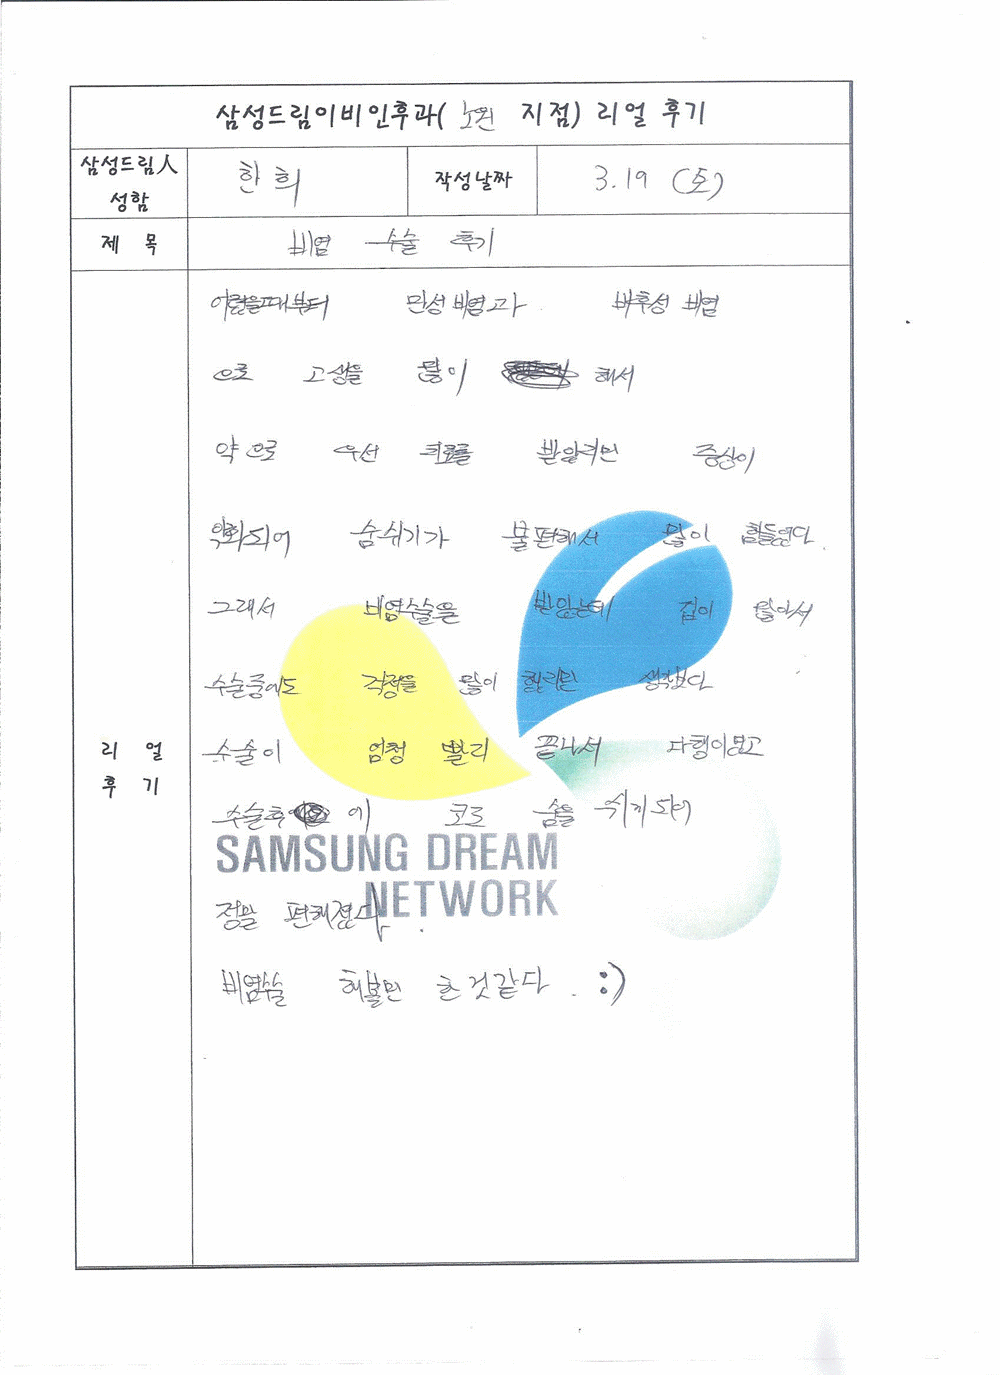 삼성드림이비인후과( 노원 지점) 리얼 후기
삼성드림人 성함
한희
작성날짜
3.19 (토)
제 목
비염 수술 후기
리 얼 후 기
어렸을때부터 만성비염과 비후성 비염
으로 고생을 많이 해서
약으로 우선 치료를 받았지만 증상이
악화되어 숨쉬기가 불편해서 많이 힘들었다.
그래서 비염수술을 받았는데 겁이 많아서
수술중에도 걱정을 많이
수술이 엄청 빨리 끝나서 다행이였고
수술후에 코로 숨을 쉬게되어
정말 편해졌다.
비염수술 해볼만 한것같다. :)
SAMSUNG DREAM
NETWORK